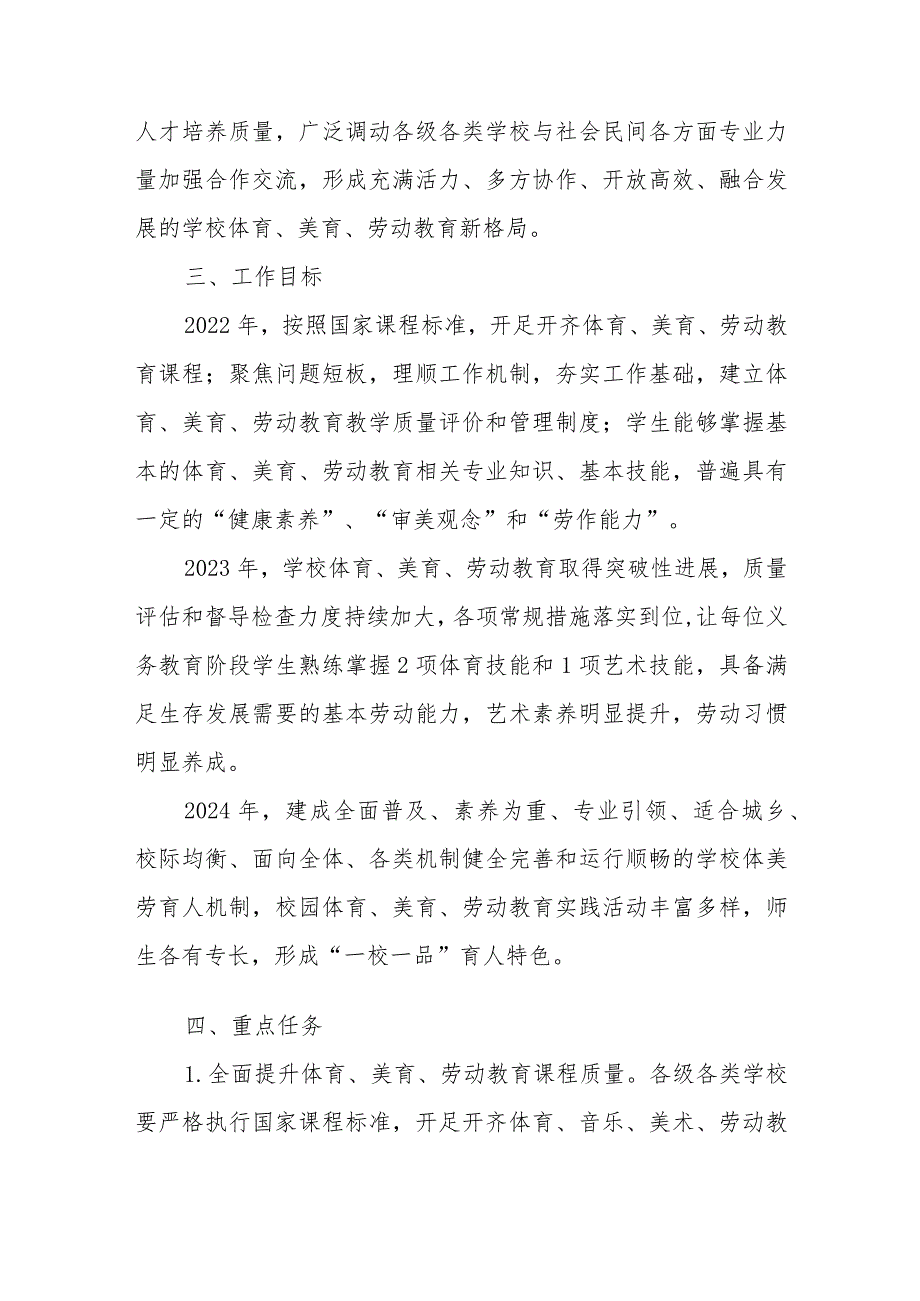 人才培养质量，广泛调动各级各类学校与社会民间各方面专业力
量加强合作交流，形成充满活力、多方协作、开放高效、融合发
展的学校体育、美育、劳动教育新格局。
三、工作目标
2022 年，按照国家课程标准，开足开齐体育、美育、劳动教
育课程；聚焦问题短板，理顺工作机制，夯实工作基础，建立体
育、美育、劳动教育教学质量评价和管理制度；学生能够掌握基
本的体育、美育、劳动教育相关专业知识、基本技能，普遍具有
一定的“健康素养”、“审美观念”和“劳作能力”。
2023 年，学校体育、美育、劳动教育取得突破性进展，质量
评估和督导检查力度持续加大，各项常规措施落实到位,让每位义
务教育阶段学生熟练掌握 2 项体育技能和 1 项艺术技能，具备满
足生存发展需要的基本劳动能力，艺术素养明显提升，劳动习惯
明显养成。
2024 年，建成全面普及、素养为重、专业引领、适合城乡、
校际均衡、面向全体、各类机制健全完善和运行顺畅的学校体美
劳育人机制，校园体育、美育、劳动教育实践活动丰富多样，师
生各有专长，形成“一校一品”育人特色。
四、重点任务
1.全面提升体育、美育、劳动教育课程质量。各级各类学校
要严格执行国家课程标准，开足开齐体育、音乐、美术、劳动教